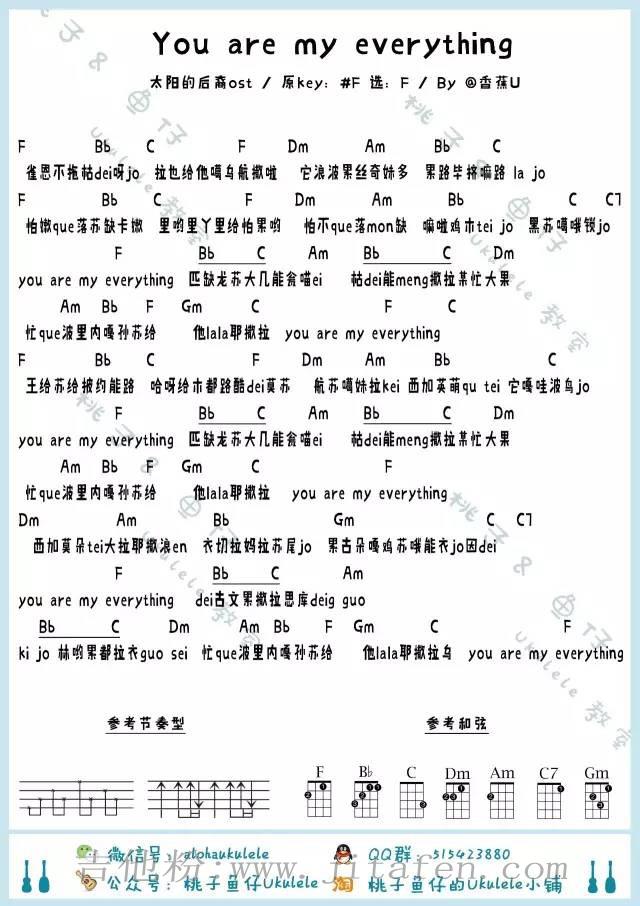 You are my everything
太阳的后裔ost / 原key: #F 选: F / By @香蕉U
F Bb C F Dm Am Bb C
雀恩不拖帖dei呀jo 拉也给他嘎乌航撒啦 它浪波果丝奇妹多 果路毕挤嘛路 la jo
F Bb C F Dm Am Bb C C7
怕嫩que落苏缺卡嫩 里哟里丫里给怕果哟 怕不que落mon缺 嘛啦鸡木tei jo 黑苏噶哦锁jo
F Bb C F Bb C Dm
you are my everything 匹缺龙苏大几能禽喵ei 帖dei能meng撒拉某忙大果
Am Bb F Gm C F
忙que波里内嘎孙苏给 他lala耶撒拉 you are my everything
F Bb C F Dm Am Bb C
王给苏给披约能路 哈呀给木都路酷dei莫苏 航苏噶妹拉kei 西加英萌qu tei 它嘎哇波鸟jo
F Bb C Am Bb C Dm
you are my everything 匹缺龙苏大几能禽喵ei 帖dei能meng撒拉某忙大果
Am Bb F Gm C F
忙que波里内嘎孙苏给 他lala耶撒拉 you are my everything
Dm Am Bb Gm C C7
西加莫朵tei大拉耶撒浪en 衣切拉妈拉苏尾jo 果古朵嘎鸡苏哦能衣jo因dei
F Bb C Am
you are my everything dei古文果撒拉思库deig guo
Bb C Dm Am Bb F Gm C F
ki jo 林哟果都拉衣guo sei 忙que波里内嘎孙苏给 他lala耶撒拉乌 you are my everything
参考节奏型 参考和弦
F Bb C Dm Am C7 Gm
微信号: alohaukulele QQ群: 515423880
公众号: 桃子鱼仔Ukulele 淘 桃子鱼仔的Ukulele小铺
吉他粉 www.jitafen.com
桃子&鱼仔 Ukulele 教室
桃子&鱼仔 Ukulele 教室
桃子&鱼仔 Ukulele 教室
桃子&鱼仔 Ukulele 教室